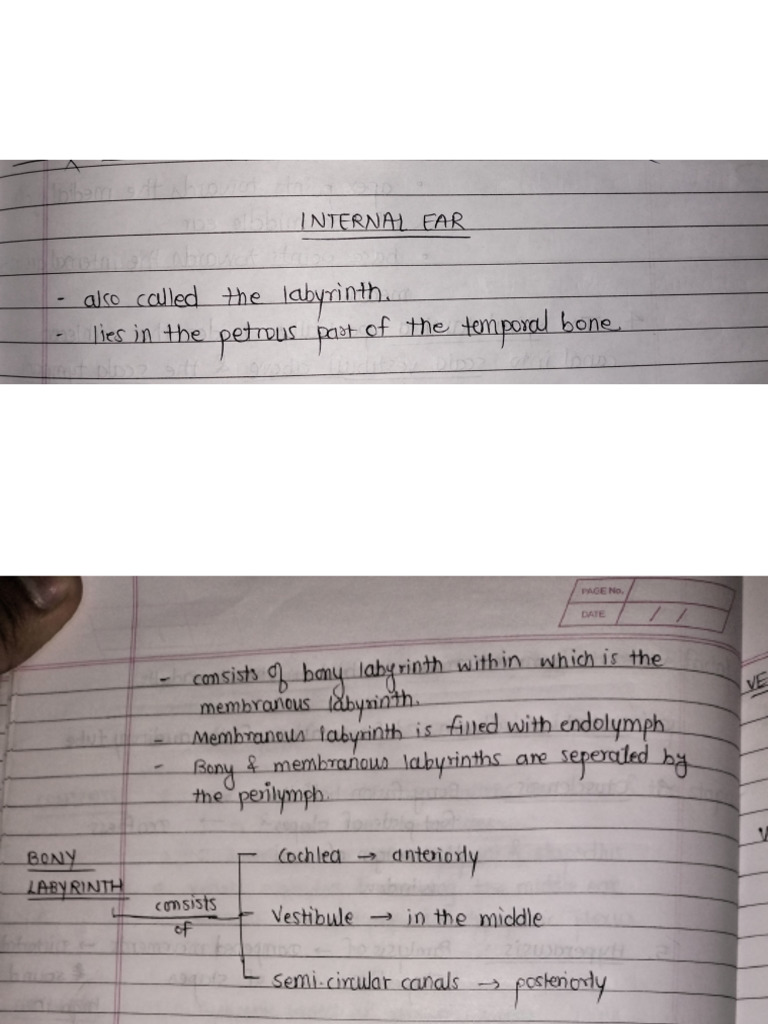 INTERNAL EAR
- also called the labyrinth.
- lies in the petrous part of the temporal bone.
PAGE No.
DATE / /
- consists of bony labyrinth within which is the
membranous labyrinth.
- Membranous labyrinth is filled with endolymph
- Bony & membranous labyrinths are seperated by
the perilymph.
BONY
LABYRINTH
consists
of
Cochlea → anteriorly
Vestibule → in the middle
Semi-circular canals → posteriorly
VE
V